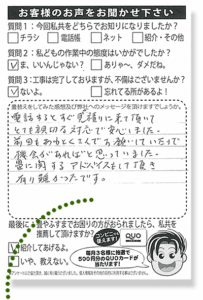 お客様のお声をお聞かせ下さい
質問1:今回私共をどちらでお知りになりましたか？
□チラシ □電話帳 □ネット □紹介・その他
質問2:私どもの作業中の態度はいかがでしたか？
☑ま、いいんじゃない？ □ありゃ～、ダメだね。
質問3:工事は完了しておりますが、不備はございませんか？
☑ないよ。 □忘れてる所があるよ！
電話するとすぐ見積りに来て頂いて
とても親切な対応で安心しました。
機会があればと思っていました。
畳に関するアドバイスもして頂き
有り難かったです。
最後に、畳やふすまでお困りの方がおられましたら、私共を
推薦して頂けますか？
☑紹介してあげるよ。
□いや、教えない。
コンビニで使えます！
QUO
毎月3名様に抽選で
500円分のQUOカードが
当たります！